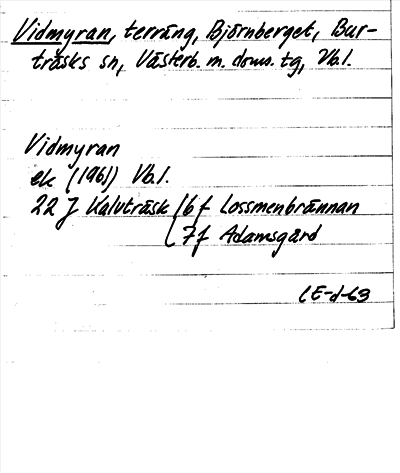 Vidmyran, terräng, Björnberget, Bur-
träsks sn, Västerb. m. doms. tg, Vb l.
Vidmyran
ek (1961) Vb l.
22 J Kalvträsk 6 f Lossmenbrännan
7f Adamsgård
CE-d-63